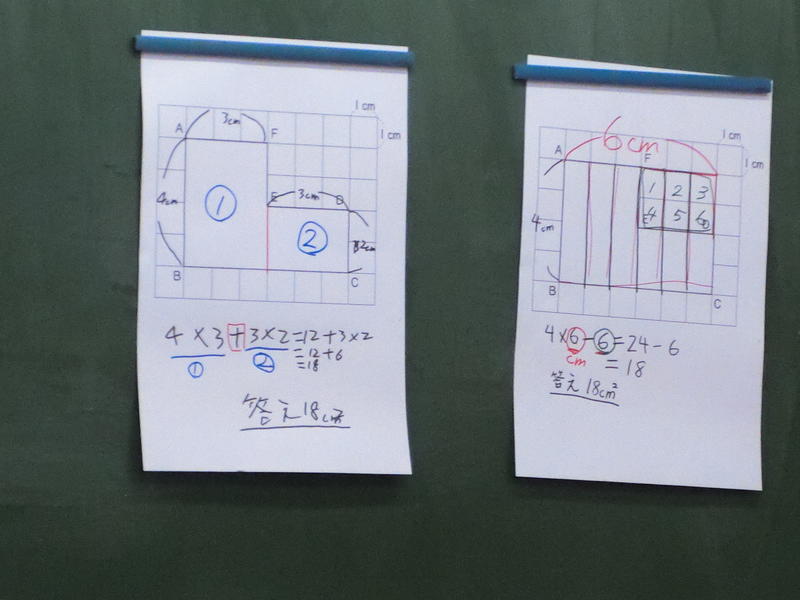 1cm
1cm
3cm
A
F
①
4cm
3cm
E
D
②
2cm
B
C
4×3+3×2=12+3×2
① ②
=12+6
=18
答え18cm²
1cm
1cm
6cm
A
F
1 2 3
4 5 6
E
D
4cm
B
C
4×6-6=24-6
cm
=18
答え 18cm²